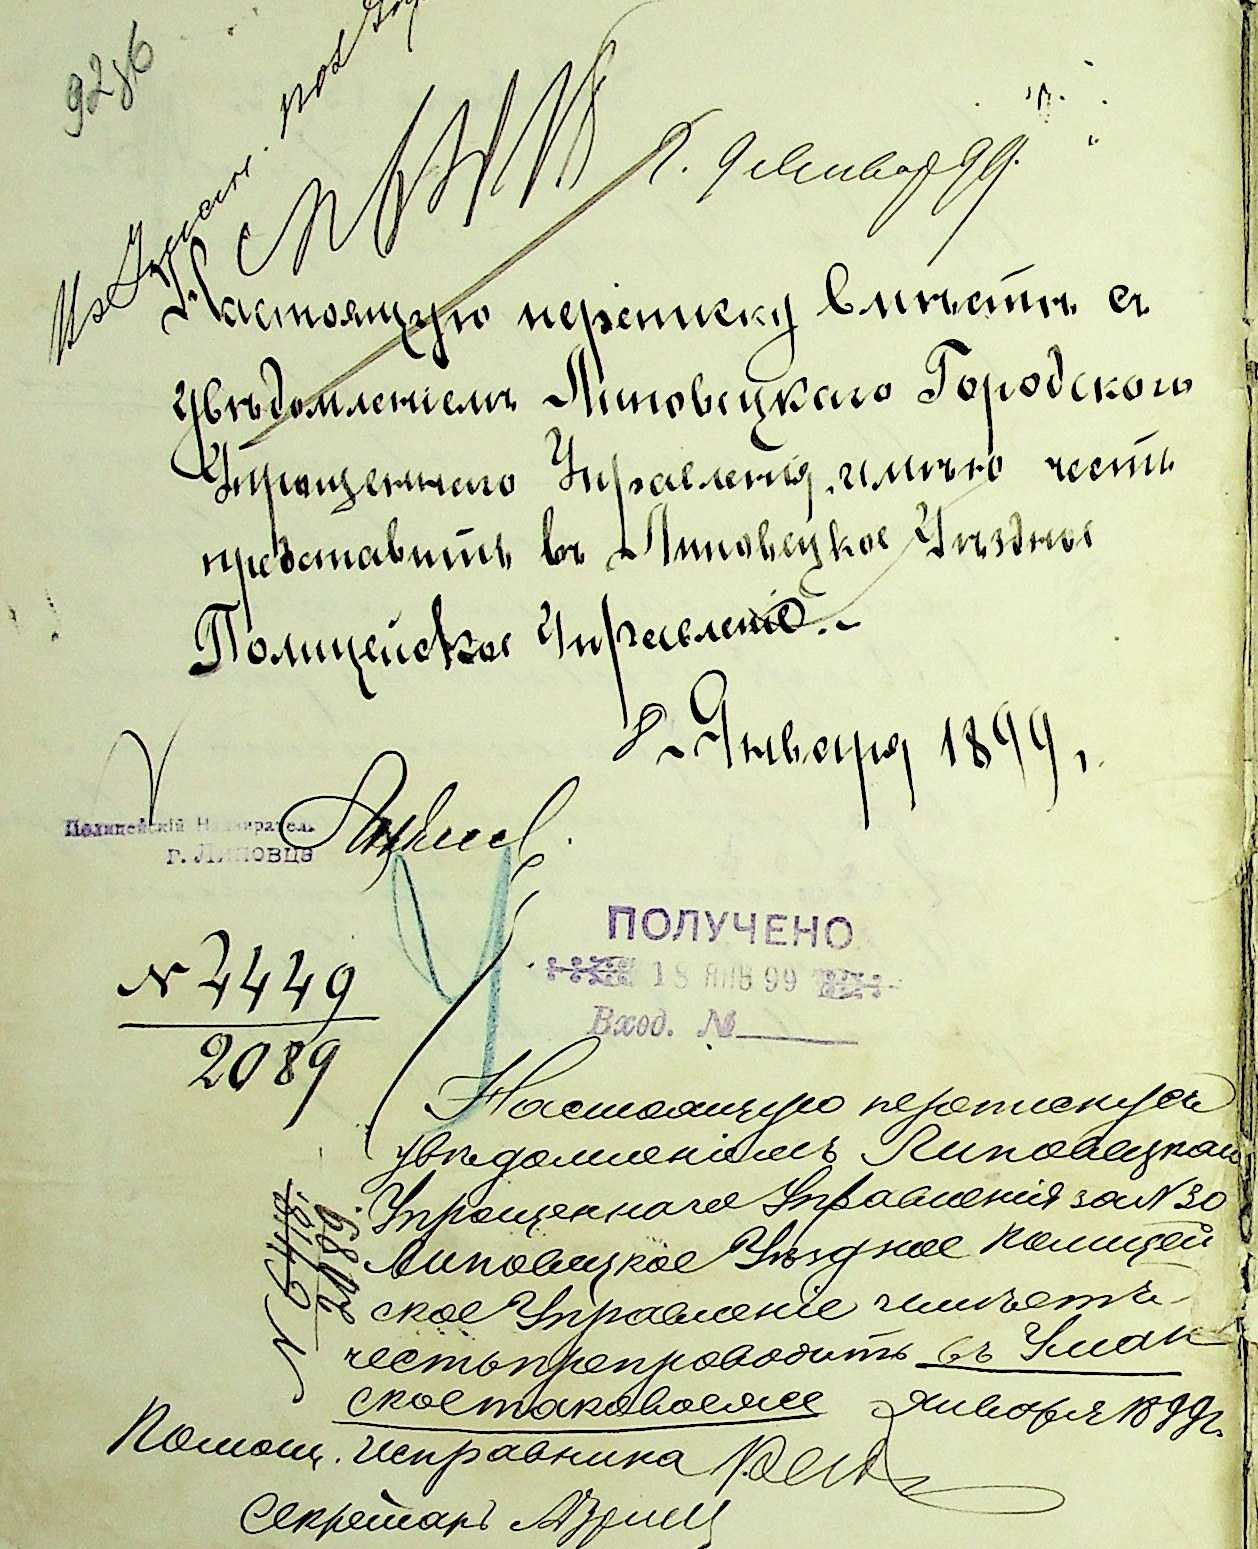 92 об
Настоящую переписку вместѣ съ
увѣдомленіемъ Липовецкаго Городского
Упрощеннаго Управленія, имѣю честь
представить въ Липовецкое Уѣздное
Полицейское Управленіе.
8 Января 1899 г.
Полицейскій Надзиратель
г. Липовца
ПОЛУЧЕНО
18 ЯНВ 99
Вход. №
№ 2449
2089
Настоящую переписку съ
увѣдомленіемъ Липовецкаго
Упрощеннаго Управленія за № 30
Липовецкое Уѣздное Полицей
ское Управленіе имѣетъ
честь препроводить въ Уман
ское таковое же января 1899 г.
Помощ. Исправника
Секретарь